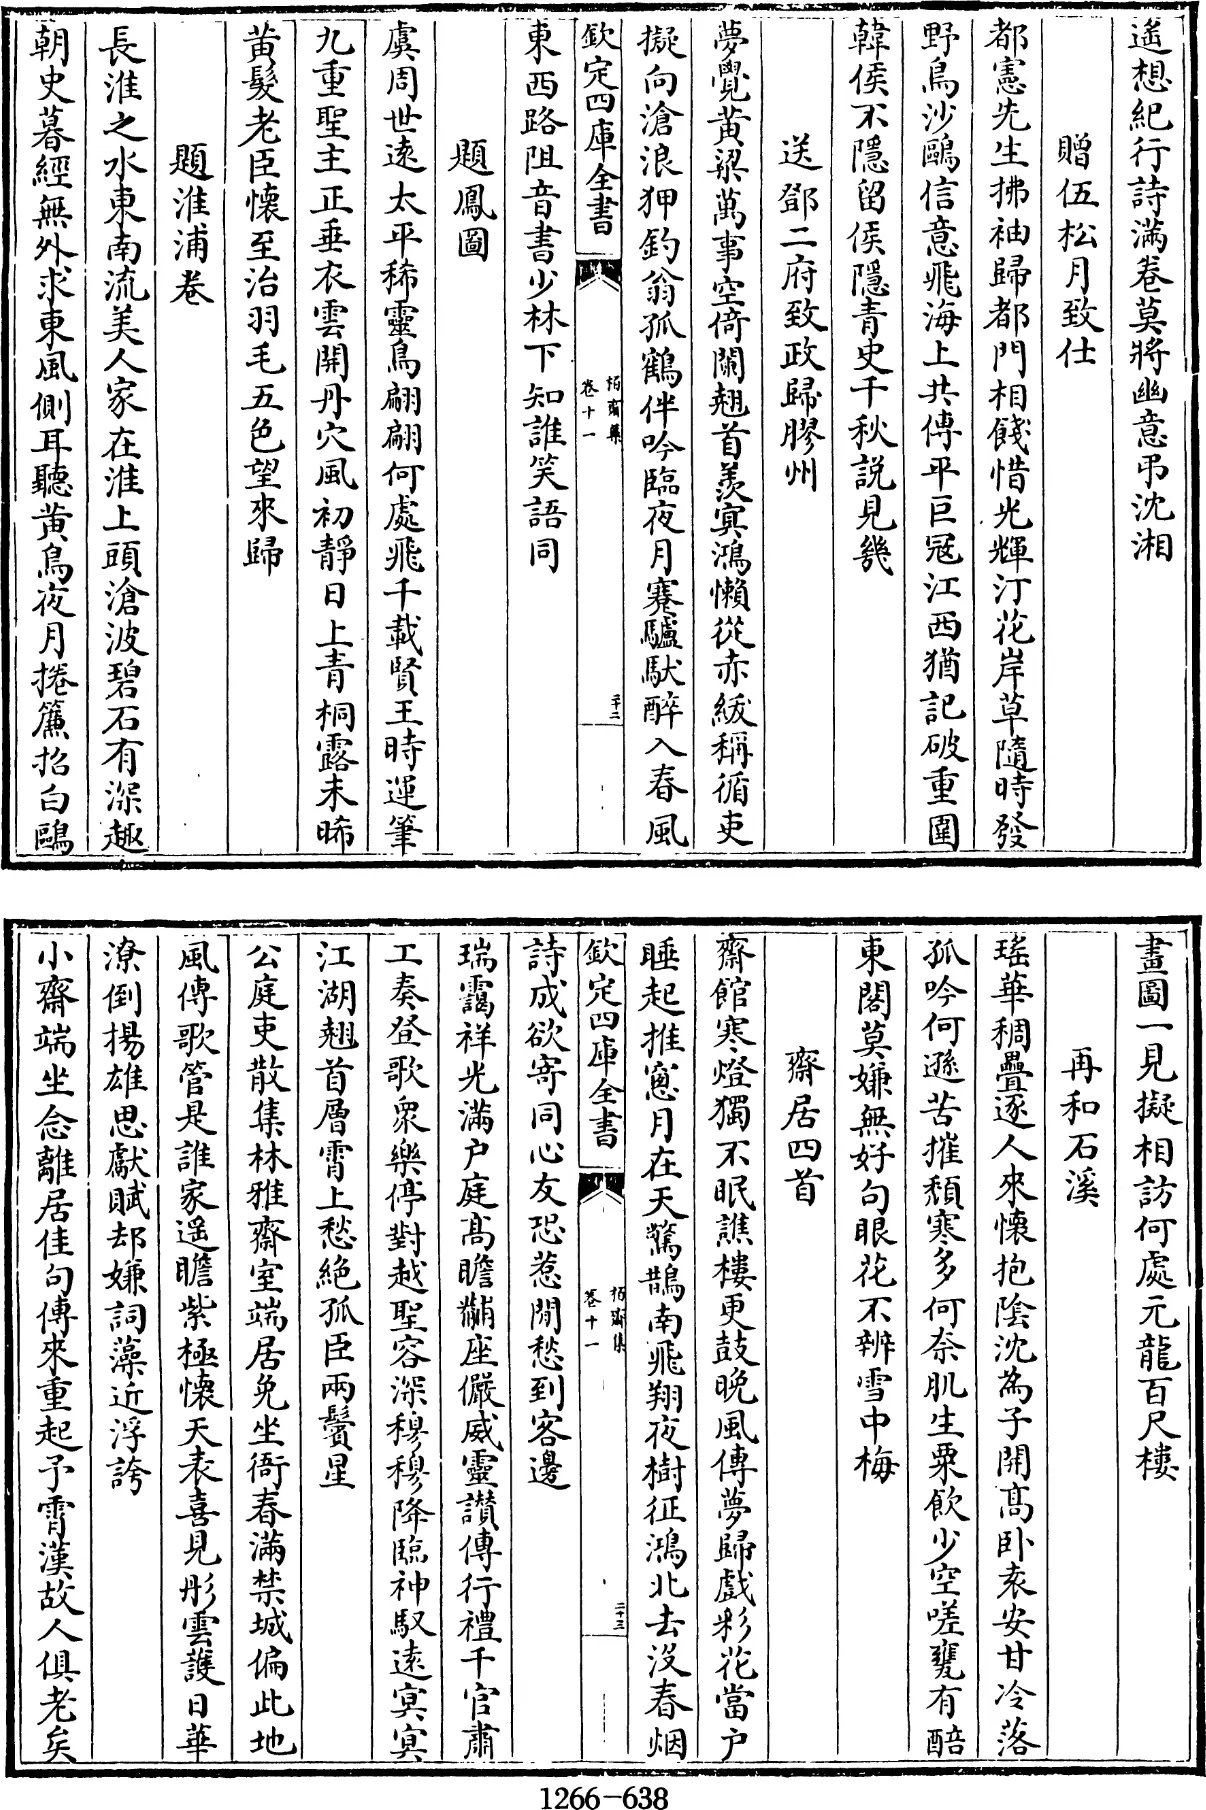 遙想紀行詩滿卷莫將幽意弔沈湘
贈伍松月致仕
都憲先生拂袖歸都門相餞惜光輝汀花岸草隨時發
野鳥沙鷗信意飛海上共傳平巨冦江西猶記破重圍
韓侯不隱留侯隱青史千秋説見幾
送鄧二府致政歸膠州
夢覺黄粱萬事空倚闌翹首羨㝠鴻懶從赤紱稱循吏
擬向滄浪狎釣翁孤鶴伴吟臨夜月蹇驢馱醉入春風
欽定四庫全書
柏齋集
卷十一
二十二
東西路阻音書少林下知誰笑語同
題鳳圖
虞周世遠太平稀靈鳥翩翩何處飛千載賢王時運筆
九重聖主正垂衣雲開丹穴風初靜日上青桐露未晞
黄髮老臣懷至治羽毛五色望來歸
題淮浦卷
長淮之水東南流美人家在淮上頭滄波碧石有深趣
朝史暮經無外求東風側耳聽黄鳥夜月捲簾招白鷗
畫圖一見擬相訪何處元龍百尺樓
再和石溪
瑤華稠疊逐人來懷抱陰沈為子開髙卧袁安甘冷落
孤吟何遜苦摧頽寒多何奈肌生粟飲少空嗟甕有醅
東閣莫嫌無好句眼花不辨雪中梅
齋居四首
齋館寒燈獨不眠譙樓更鼓晚風傳夢歸戲彩花當户
睡起推窻月在天驚鵲南飛翔夜樹征鴻北去沒春烟
欽定四庫全書
柏齋集
卷十一
二十三
詩成欲寄同心友恐惹閒愁到客邊
瑞靄祥光滿户庭髙瞻黼座儼威靈讃傳行禮千官肅
工奏登歌衆樂停對越聖容深穆穆降臨神馭遠㝠㝠
江湖翹首層霄上愁絶孤臣兩鬢星
公庭吏散集林雅齋室端居免坐衙春滿禁城偏此地
風傳歌管是誰家遥瞻紫極懷天表喜見彤雲護日華
潦倒揚雄思獻賦却嫌詞藻近浮誇
小齋端坐念離居佳句傳來重起予霄漢故人俱老矣
1266-638